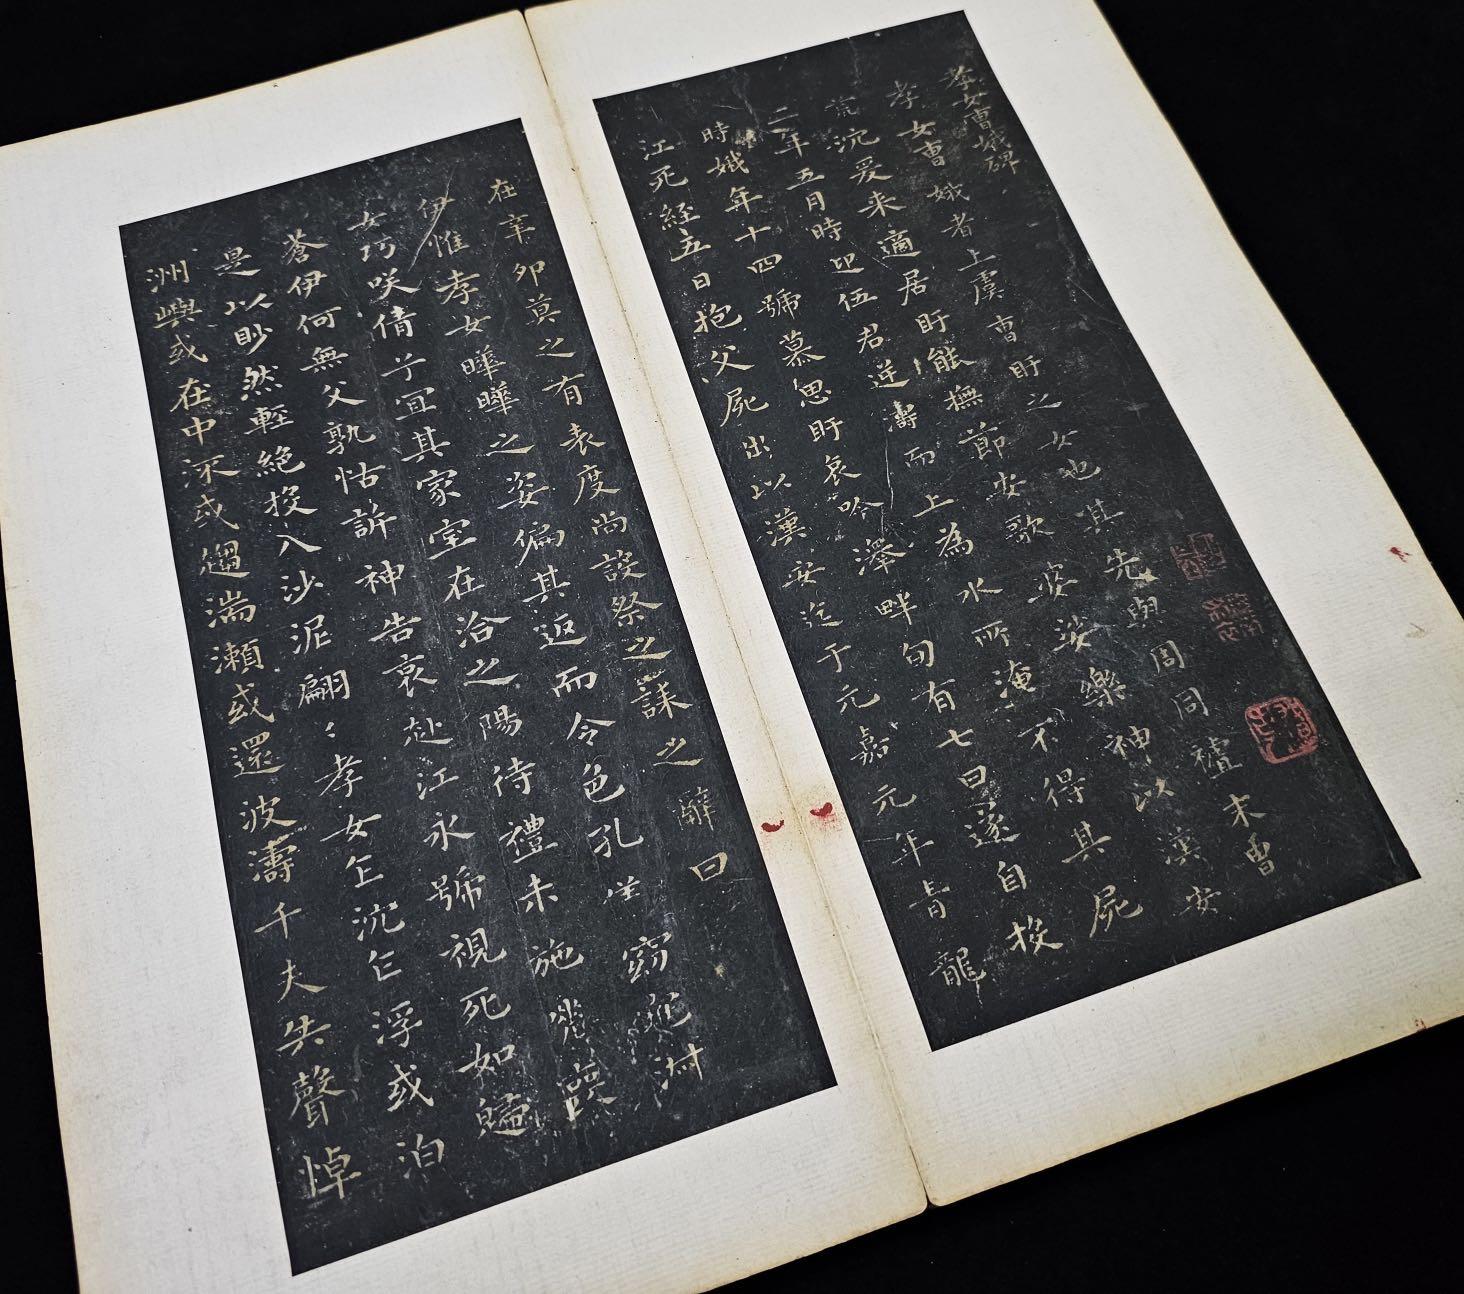 孝女曹娥碑
孝女曹娥者上虞曹盱之女也其先與周同禮末曹
荒沉爰来適居盱能撫節安歌婆娑樂神以漢安
二年五月時迎伍君逆濤而上為水所淹不得其屍
時娥年十四號慕思盱哀吟澤畔旬有七日遂自投
江死經五日抱父屍出以漢安迄于元嘉元年青龍
在辛卯莫之有表度尚設祭之誄之辭曰
伊惟孝女曄曄之姿偏其返而令色孔儀窈窕淑
女巧咲倩兮宜其家室在洽之陽待禮未施嗟喪
蒼伊何無父孰怙訴神告哀赴江永號視死如歸
是以眇然輕絕投入沙泥翩〻孝女乍沉乍浮或泊
洲嶼或在中流或趨湍瀬或還波濤千夫失聲悼